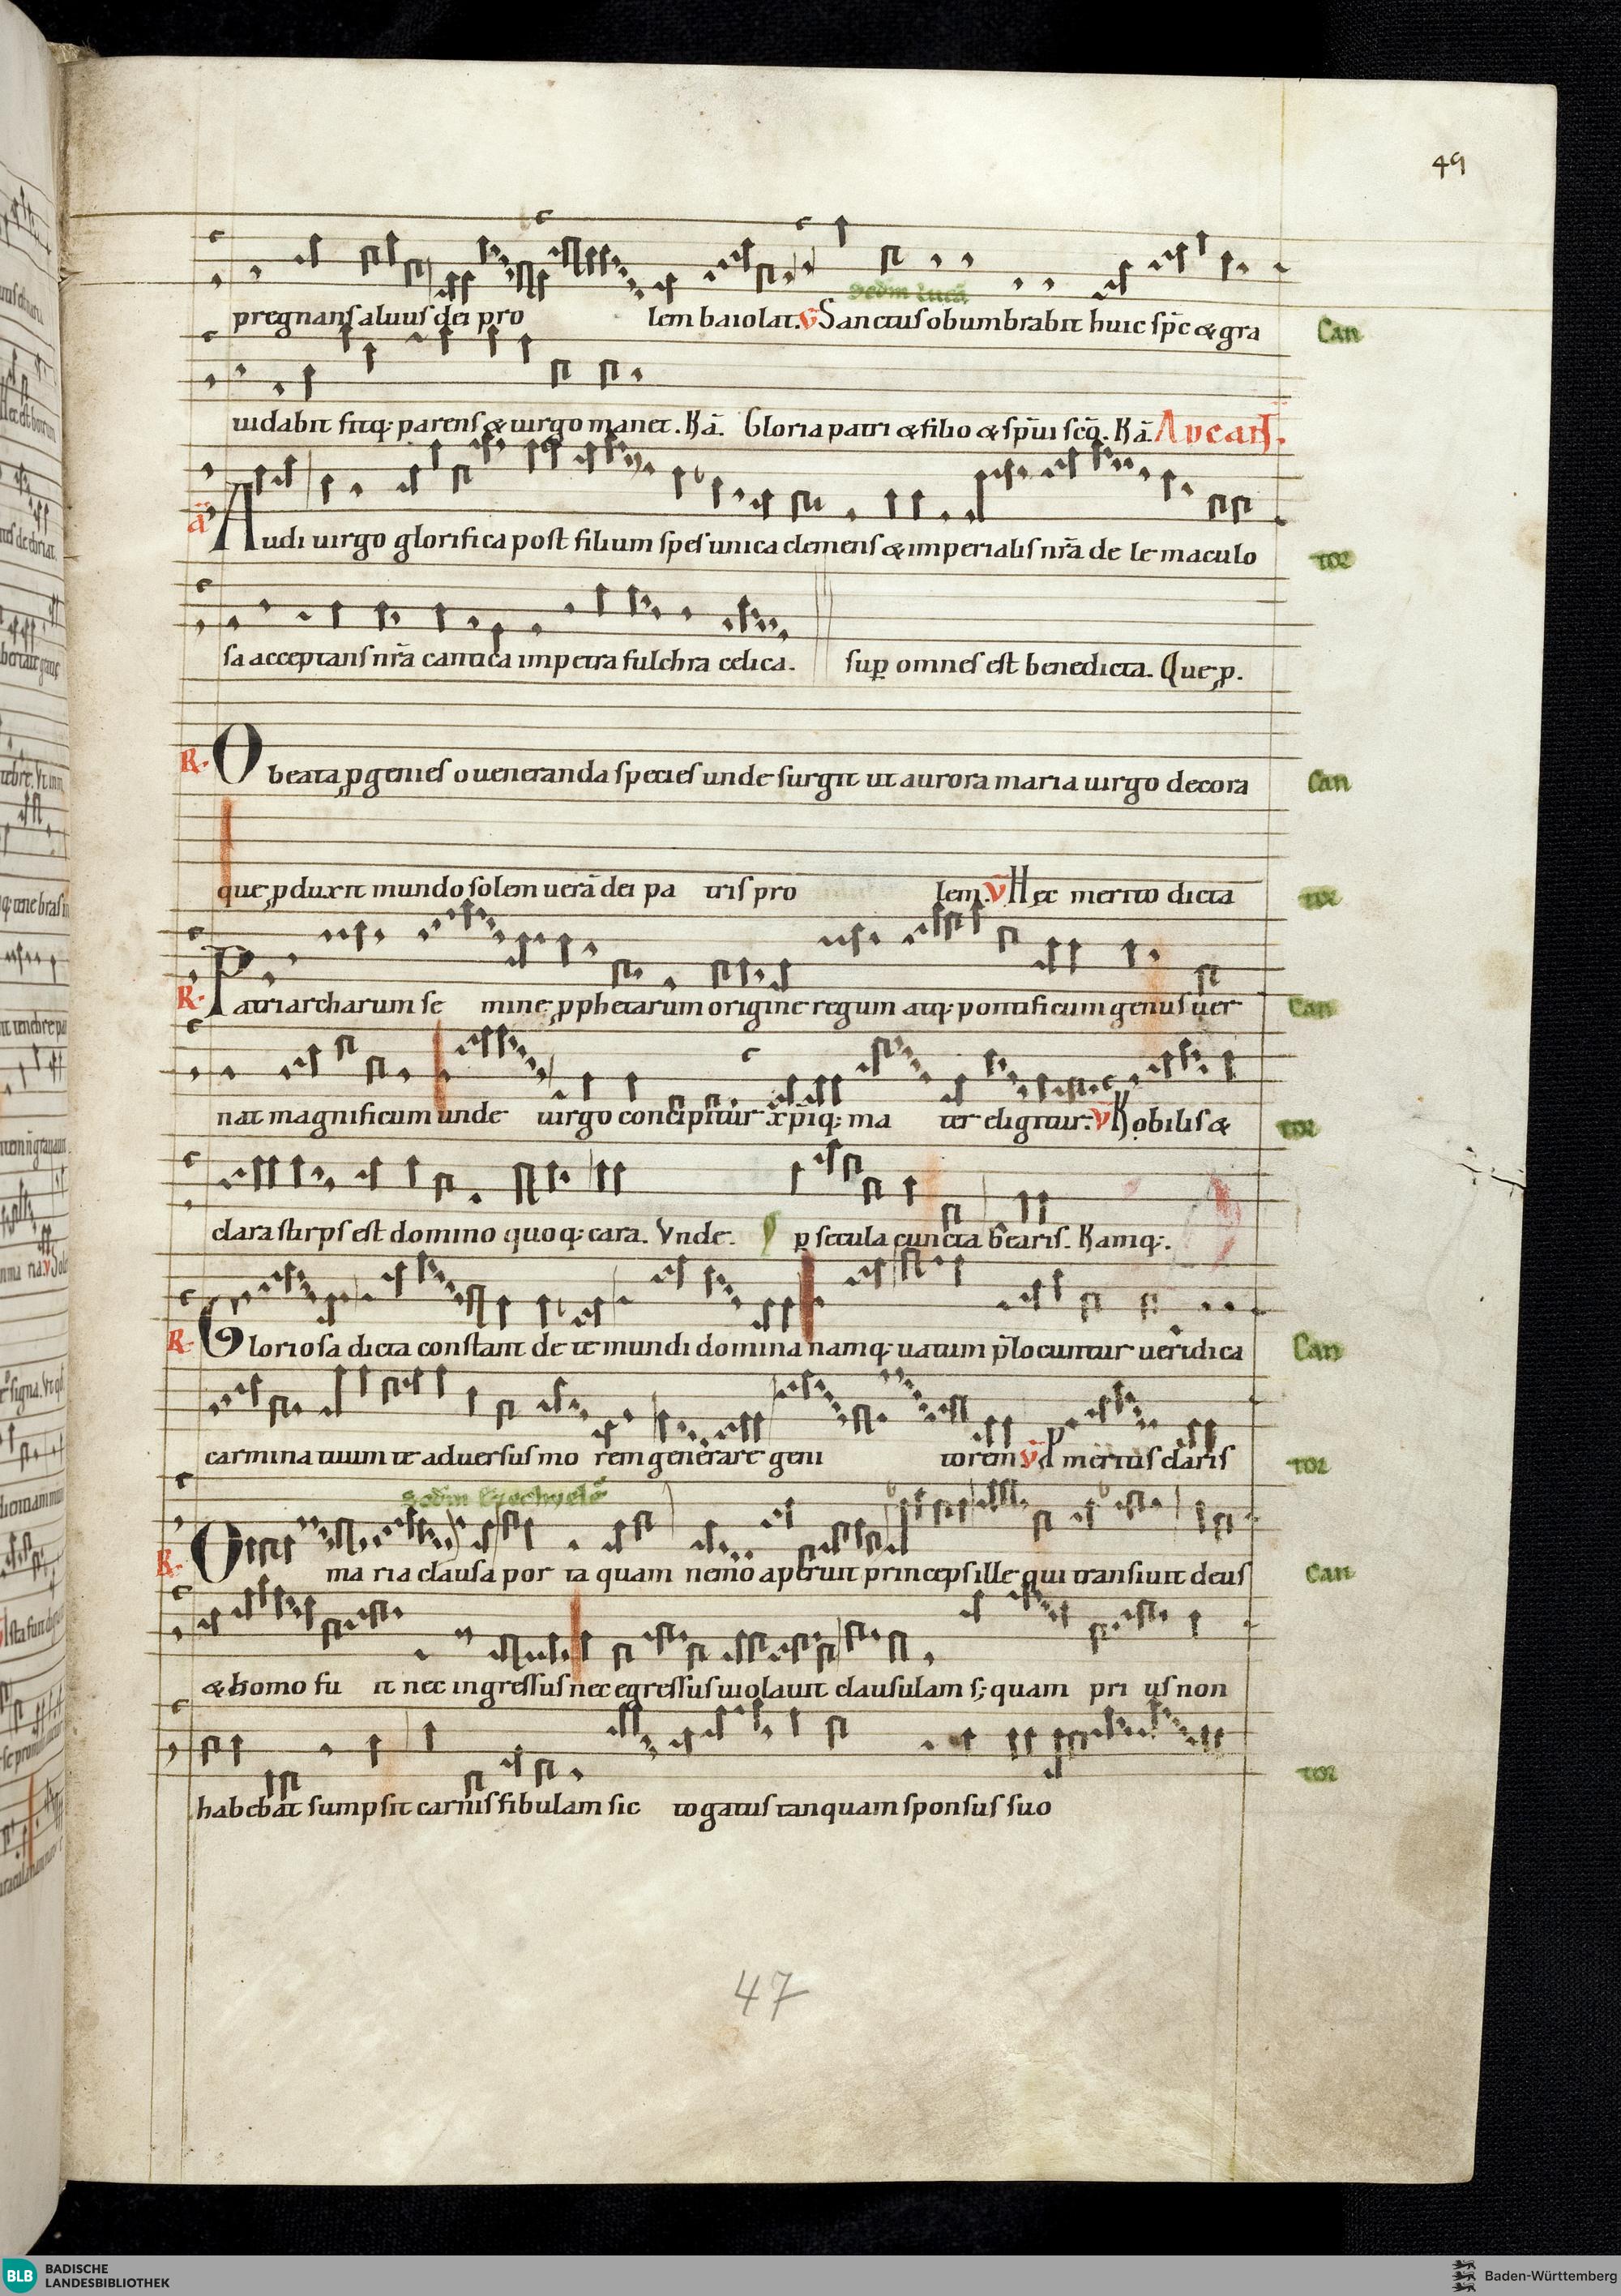 49
sedm lucā
pregnans aluus dei pro lem baiolat. V̄ Sanctus obumbrabit huic sp̄c & gra Can
uidabit fitq; parens & uirgo manet. Kā. Gloria patri & filio & sp̄ui scō. Kā.
ā Audi uirgo glorifica post filium spes unica clemens & imperialis nr̄a de le maculo tor
sa acceptans nr̄a cantica impetra fulchra celica. suꝑ omnes est benedicta. Que ꝓ.
R. O beata ꝓgenies o ueneranda species unde surgit ut aurora maria uirgo decora Can
que ꝓduxit mundo solem uerā dei pa tris pro lem. V̄ Hec merito dicta tor
R. Patriarcharum se mine ꝓphetarum origine regum atq; pontificum genus uer Can
nat magnificum unde uirgo concipitur xp̄iq; ma ter eligitur. V̄ Nobilis & tor
clara stirps est domino quoq; cara. Vnde. ꝑ secula cuncta bearis. Namq;.
R. Gloriosa dicta constant de te mundi domina namq; uatum p̄locuntur ueridica Can
carmina tuum te aduersus mo rem generare geni torem V̄ d meritis claris tor
sedm Ezechyelē
R. O ma ria clausa por ta quam nemo aperuit princeps ille qui transiuit deus Can
& homo fu it nec ingressus nec egressus uiolauit clausulam s; quam pri us non
habebat sumpsit carnis fibulam sic togatus tanquam sponsus suo tor
47
BLB BADISCHE
LANDESBIBLIOTHEK
Baden-Württemberg